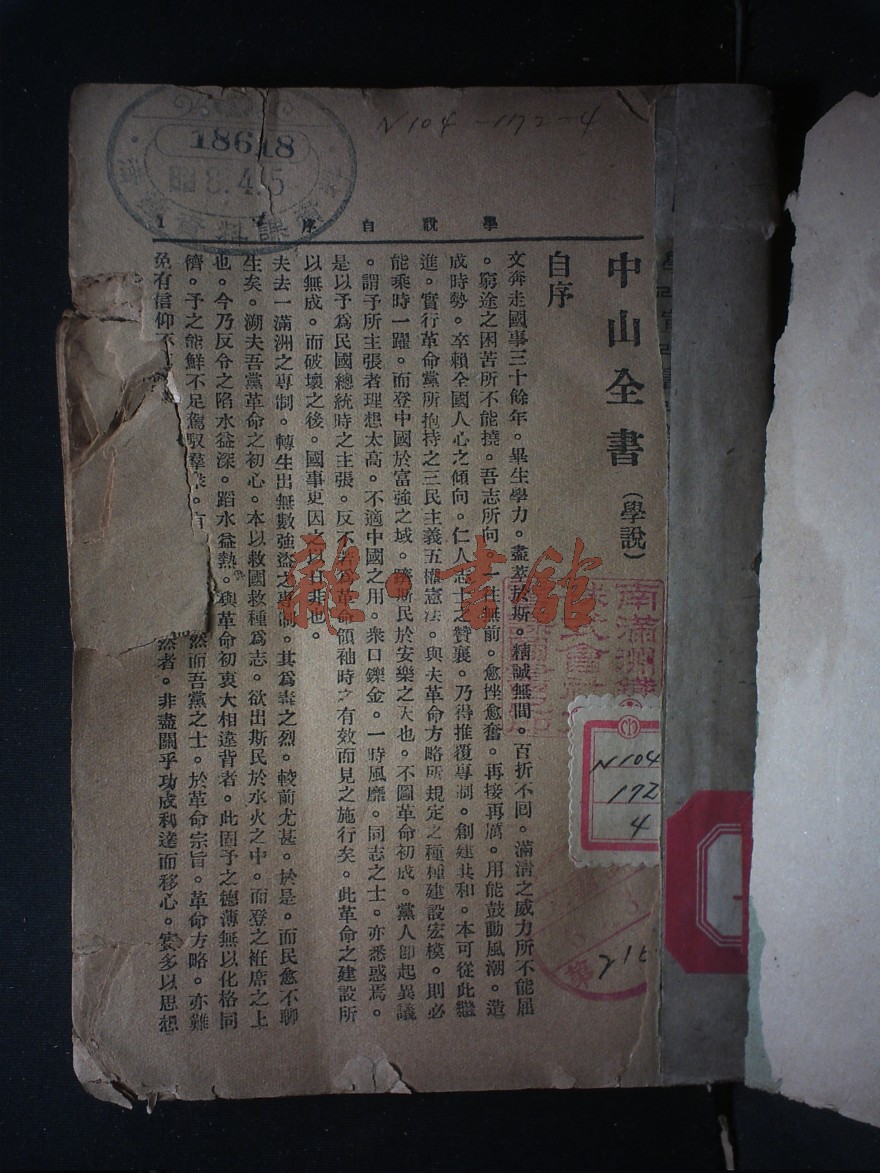 N104-172-4
18618
8.4.5
資料課
學說自序 1
中山全書(學說)
自序
文奔走國事三十餘年。畢生學力。盡萃於斯。精誠無間。百折不回。滿清之威力所不能屈
。窮途之困苦所不能撓。吾志所向。一往無前。愈挫愈奮。再接再厲。用能鼓動風潮。造
成時勢。卒賴全國人心之傾向。仁人志士之贊襄。乃得推覆專制。創建共和。本可從此繼
進。實行革命黨所抱持之三民主義五權憲法。與夫革命方略所規定之種種建設宏模。則必
能乘時一躍。而登中國於富強之域。躋斯民於安樂之天也。不圖革命初成。黨人卽起異議
。謂予所主張者理想太高。不適中國之用。衆口鑠金。一時風靡。同志之士。亦悉惑焉。
是以予爲民國總統時之主張。反不若爲革命領袖時之有效而見之施行矣。此革命之建設所
以無成。而破壞之後。國事更因之以日非也。
夫去一滿洲之專制。轉生出無數強盜之專制。其爲毒之烈。較前尤甚。於是。而民愈不聊
生矣。溯夫吾黨革命之初心。本以救國救種爲志。欲出斯民於水火之中。而登之袵席之上
也。今乃反令之陷水益深。蹈水益熱。與革命初衷大相違背者。此固予之德薄無以化格同
儕。予之能鮮不足駕馭羣衆。有 然而吾黨之士。於革命宗旨。革命方略。亦難
免有信仰不 然者。非盡關乎功成利達而移心。實多以思想
雜·書館
南滿洲鐵
株式會社
N104
172
4